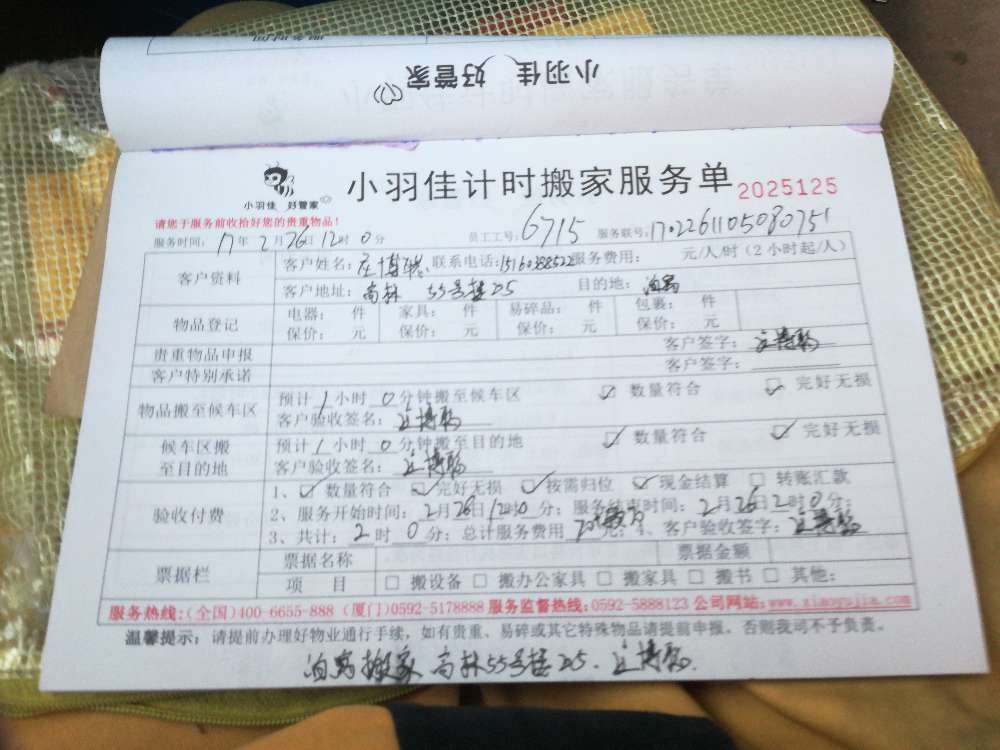 小羽佳 好管家
小羽佳 好管家
小羽佳计时搬家服务单
2025125
请您于服务前收拾好您的贵重物品!
服务时间: 17年 2月26日 12时 0分 员工工号: 6715 服务联号: 1702261105080751
客户资料
客户姓名: 联系电话: 服务费用: 元/人/时 (2小时起/人)
客户地址: 高林 55号楼 目的地:
物品登记
电器: 件 家具: 件 易碎品: 件 包裹: 件
保价: 元 保价: 元 保价: 元 保价: 元
贵重物品申报 客户签字:
客户特别承诺 客户签字:
物品搬至候车区
预计1小时 0分钟搬至候车区 数量符合 完好无损
客户验收签名:
候车区搬至目的地
预计1小时 0分钟搬至目的地 数量符合 完好无损
客户验收签名:
验收付费
1、数量符合 完好无损 按需归位 现金结算 转账汇款
2、服务开始时间: 2月26日12时0分; 服务结束时间: 2月26日2时0分;
3、共计: 2时 0分; 总计服务费用 元; 4、客户验收签字:
票据栏
票据名称 票据金额
项 目 搬设备 搬办公家具 搬家具 搬书 其他:
服务热线: (全国)400-6655-888 (厦门)0592-5178888 服务监督热线: 0592-5888123 公司网站: www.xiaoyujia.com
温馨提示: 请提前办理好物业通行手续, 如有贵重、易碎或其它特殊物品请提前申报。否则我司不予负责。
搬家 高林55号楼